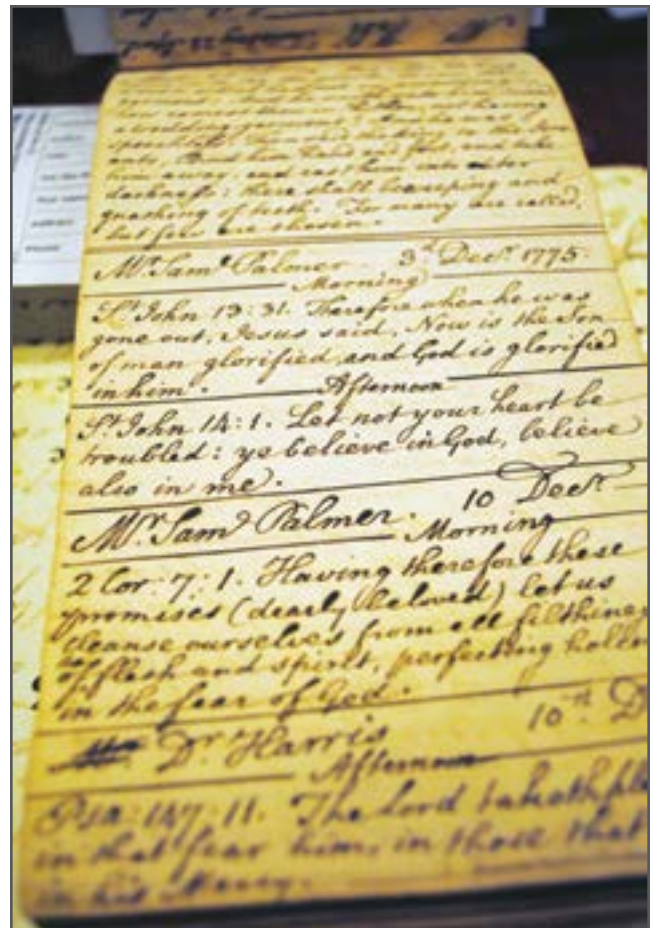 not having
a wedding garment? And he was
speechless. Then said the king to the
Bind him hand and foot, and take
him away and cast him into outer
darkness: there shall be weeping and
gnashing of teeth. For many are called,
but few are chosen.
Mr. Saml. Palmer. 3d. Decr. 1775.
Morning
St. John 13:31. Therefore when he was
gone out, Jesus said, Now is the Son
of man glorified and God is glorified
in him.
Afternoon
St. John 14:1. Let not your heart be
troubled: ye believe in God, believe
also in me.
Mr. Saml. Palmer. 10 Decr.
Morning
2 Cor: 7:1. Having therefore these
promises (dearly beloved) let us
cleanse ourselves from all filthines
of flesh and spirit, perfecting holin
in the fear of God.
Dr. Harris 10th. D
Afternoon
Psa: 147:11. The Lord taketh ple
in that fear him, in those that
in his Mercy.